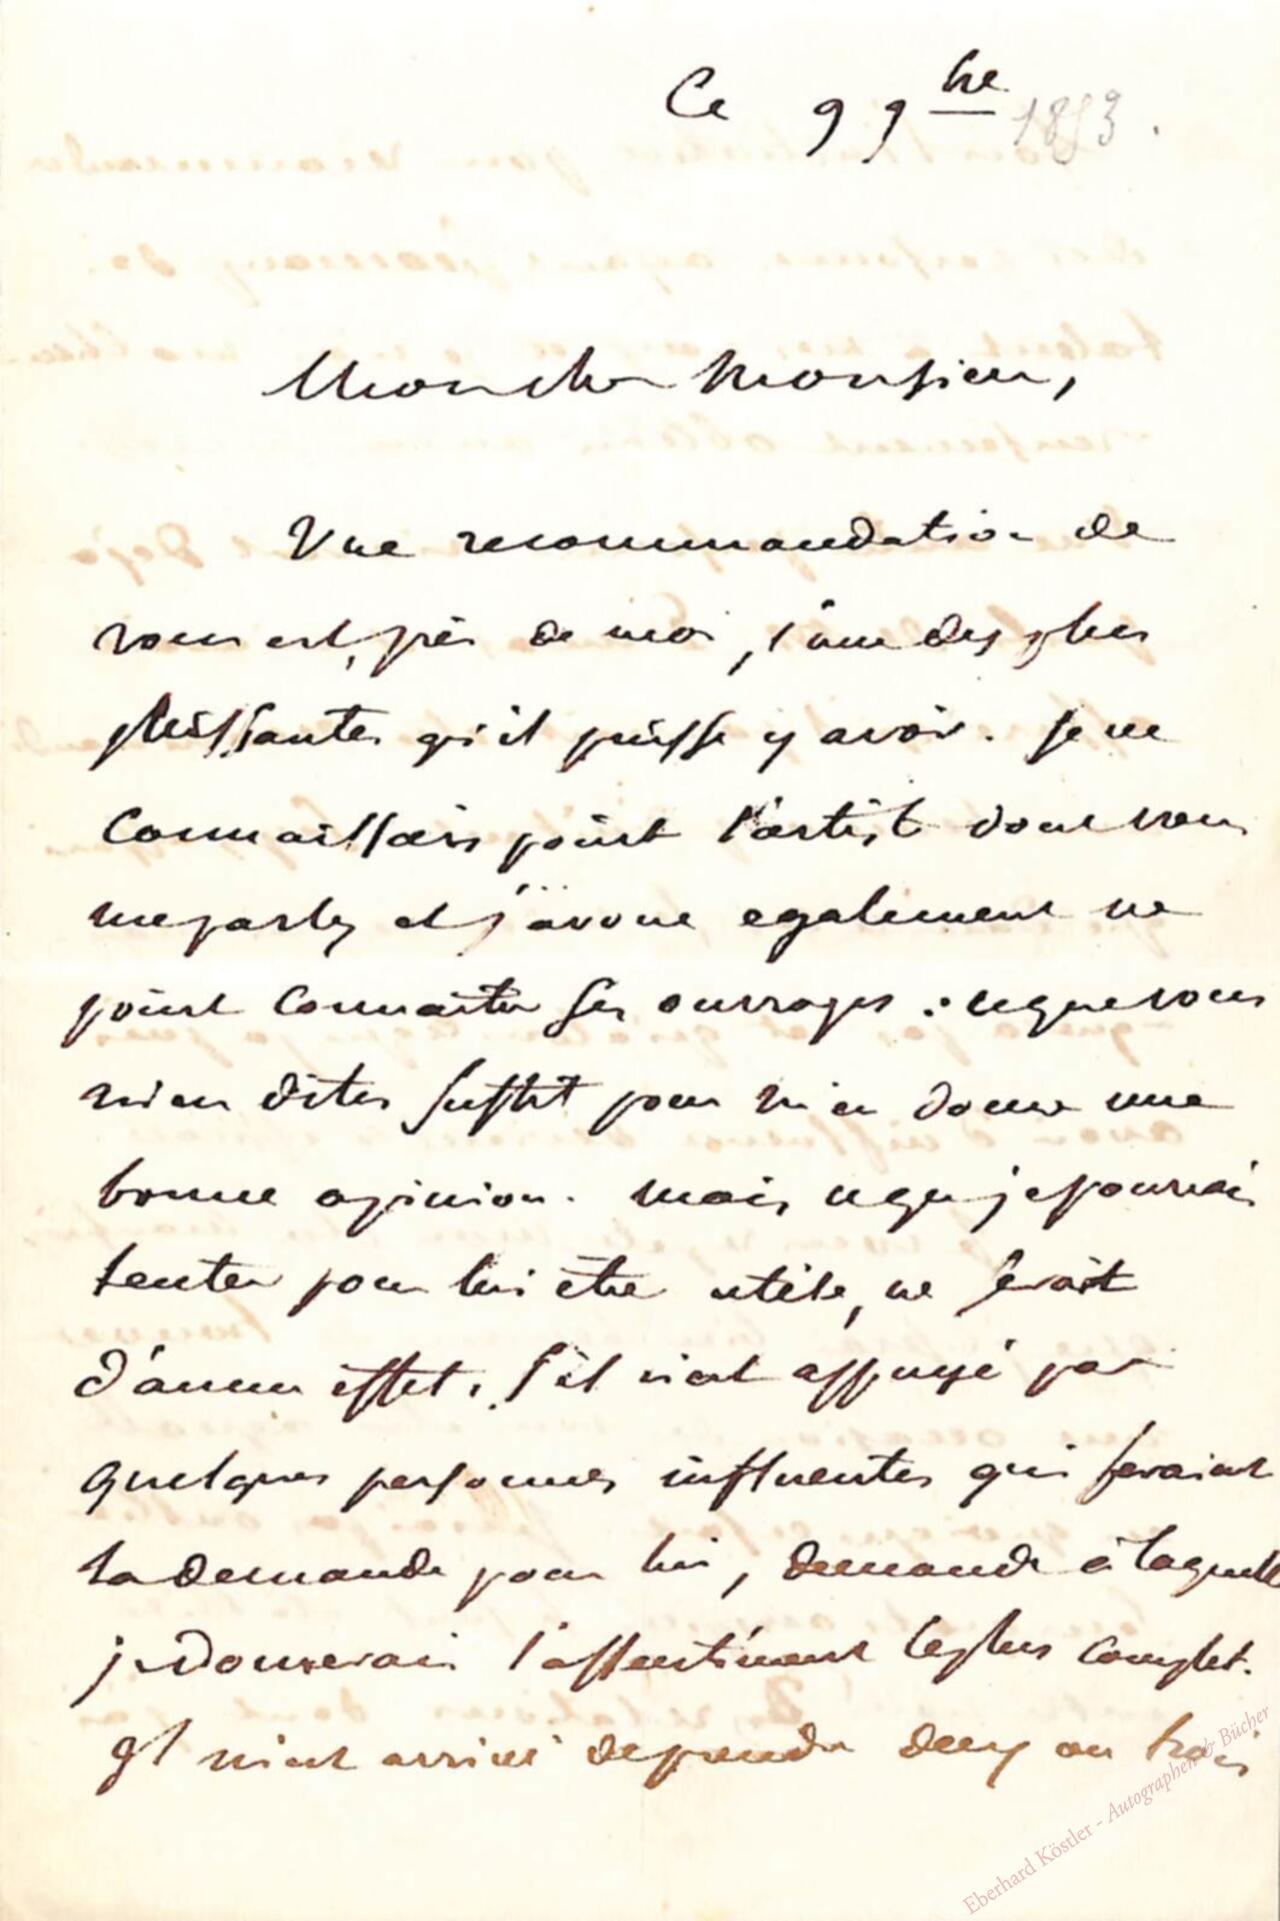 Ce 9 9bre 1853.
Mon cher Monsieur,
Une recommandation de
vous est, près de moi, l'une des plus
puissantes qu'il puisse y avoir. Je ne
connaissais point l'artiste dont vous
me parlez et j'avoue egalement ne
point connaitre ses ouvrages : ce que vous
m'en dites suffit pour m'en donner une
bonne opinion. Mais ce que je pourrais
tenter pour lui être utile, ne serait
d'aucun effet, s'il n'est appuyé par
quelques personnes influentes qui feraient
la demande pour lui, demande à laquelle
je donnerais l'assentiment le plus complet.
Il m'est arrivé depuis deux ou trois
Eberhard Köstler - Autographen & Bücher